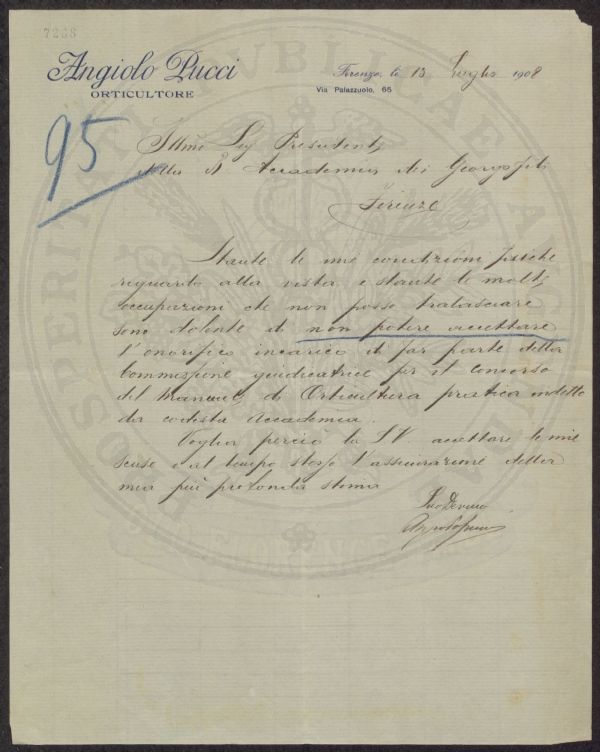 7268
Angiolo Pucci
ORTICULTORE
Firenze, li 13 Luglio 1908
Via Palazzuolo, 65
95
Illmo Sig Presidente
della R Accademia dei Georgofili
Firenze
Stante le mie condizioni fisiche
riguardo alla vista e stante le molte
occupazioni che non posso tralasciare
sono dolente di non potere accettare
l'onorifico incarico di far parte della
Commissione giudicatrice per il concorso
del Manuale di Orticultura pratica indetto
da codesta Accademia.
Voglia perciò la S.V. accettare le mie
scuse e al tempo stesso l'assicurazione della
mia più profonda stima
Suo Devmo
Angiolo Pucci